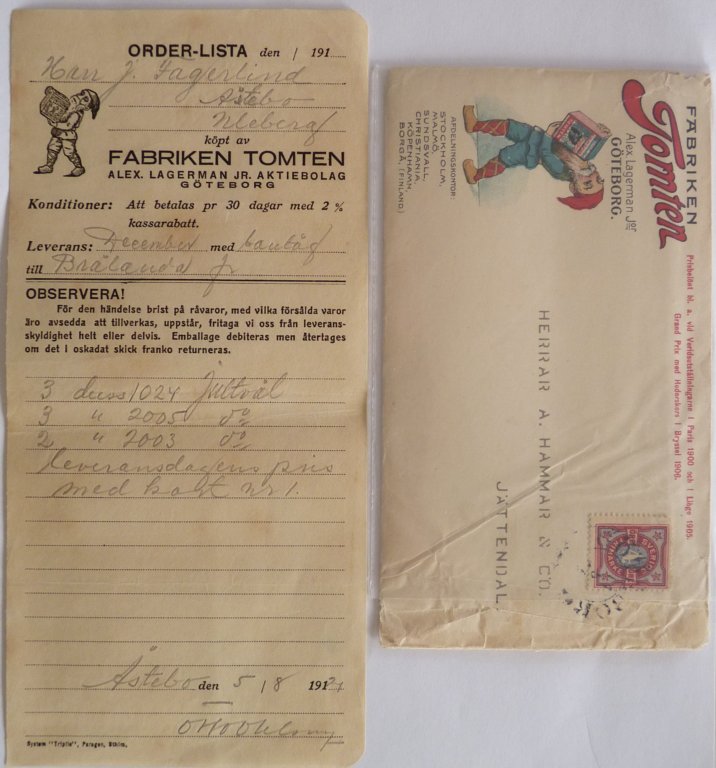 ORDER-LISTA den / 191
Herr J. Fagerlind
Åstebo
Uleberg
köpt av
FABRIKEN TOMTEN
ALEX. LAGERMAN JR. AKTIEBOLAG
GÖTEBORG
Konditioner: Att betalas pr 30 dagar med 2 %
kassarabatt.
Leverans: December med
till Brålanda Jr
OBSERVERA!
För den händelse brist på råvaror, med vilka försålda varor
äro avsedda att tillverkas, uppstår, fritaga vi oss från leverans-
skyldighet helt eller delvis. Emballage debiteras men återtages
om det i oskadat skick franko returneras.
3 duss 1024 Jultvål
3 " 2005 do
2 " 2003 do
leveransdagens pris
med kort nr 1.
Åstebo den 5 / 8 191
System "Triplis", Paragon, Sthlm.
FABRIKEN
Tomten
Alex Lagerman Jor
GÖTEBORG.
AFDELNINGSKONTOR:
STOCKHOLM,
MALMÖ,
SUNDSVALL,
CHRISTIANIA,
KÖPENHAMN,
BORGÅ, (FINLAND.)
Prisbelönt bl. a. vid Verldsutställningarne i Paris 1900 och i Liège 1905.
Grand Prix med Hederskors i Bryssel 1906.
HERRAR A. HAMMAR & CO.
JÄTTENDAL.
SVERIGE